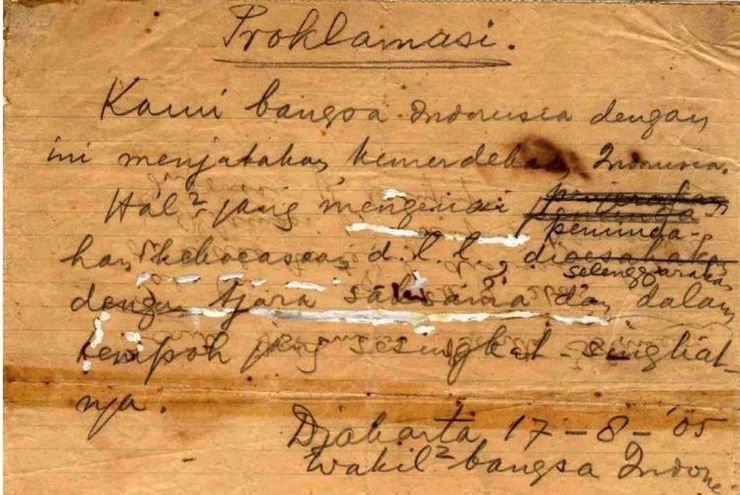 Proklamasi.
Kami bangsa Indonesia dengan
ini menjatakan kemerdekaan Indonesia.
Hal² jang mengenai penjerahan
peminda-
han kekoeasaan d.l.l., dioesahakan
selenggarakan
dengan tjara saksama dan dalam
tempoh jang sesingkat-singkat-
nja.
Djakarta 17 - 8 - '05
Wakil² bangsa Indone-